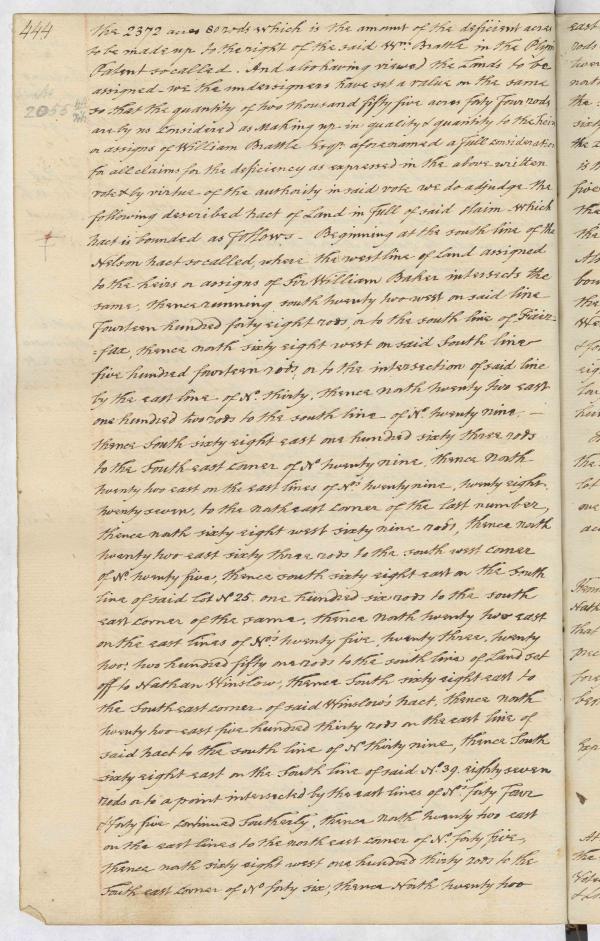 444
the 2372 acres 80 rods which is the amount of the deficient acres
to be made up to the right of the said Wm. Brattle in the Plym
Patent so called. And also having viewed the Lands to be
assigned we the undersigners have set a value on the same
2055
so that the quantity of two thousand fifty five acres forty four rods
are by us Considered as Making up in quality & quantity to the Heirs
or assigns of William Brattle Esqr. aforenamed a full consideration
for all claims for the deficiency as expressed in the above written
vote & by virtue of the authority in said vote we do adjudge the
following described tract of Land in full of said claim. Which
tract is bounded as follows - Beginning at the south line of the
Nelson tract so called, where the west line of land assigned
to the heirs or assigns of Sir William Baker intersects the
same, thence running south twenty two west on said line
Fourteen hundred forty eight rods, or to the south line of Fair-
=fax, thence north sixty eight west on said South line
five hundred fourteen rods, or to the intersection of said line
by the east line of No. thirty, thence north twenty two east
one hundred two rods to the south line of No. twenty nine. -
thence South sixty eight east one hundred sixty three rods
to the South east corner of No twenty nine, thence North
twenty two east on the east lines of Nos. twenty nine, twenty eight,
twenty seven, to the north east corner of the last number,
thence north sixty eight west sixty nine rods, thence north
twenty two east sixty three rods to the south west corner
of No. twenty five, thence south sixty eight east on the South
line of said lot N 25. one hundred six rods to the south
east corner of the same, thence North twenty two east
on the east lines of Nos. twenty five, twenty three, twenty
two, two hundred fifty one rods to the south line of Land set
off to Nathan Winslow, thence South sixty eight east to
the South east corner of said Winslow's tract, thence north
twenty two east five hundred thirty rods on the east line of
said tract to the south line of No thirty nine, thence South
sixty eight east on the South line of said No. 39. eighty seven
rods or to a point intersected by the east lines of Nos. forty Four
& forty five continued Southerly, thence north twenty two east
on the east lines to the north east corner of No. forty five,
thence north sixty eight west one hundred thirty rods to the
South east corner of No forty six, thence North twenty two